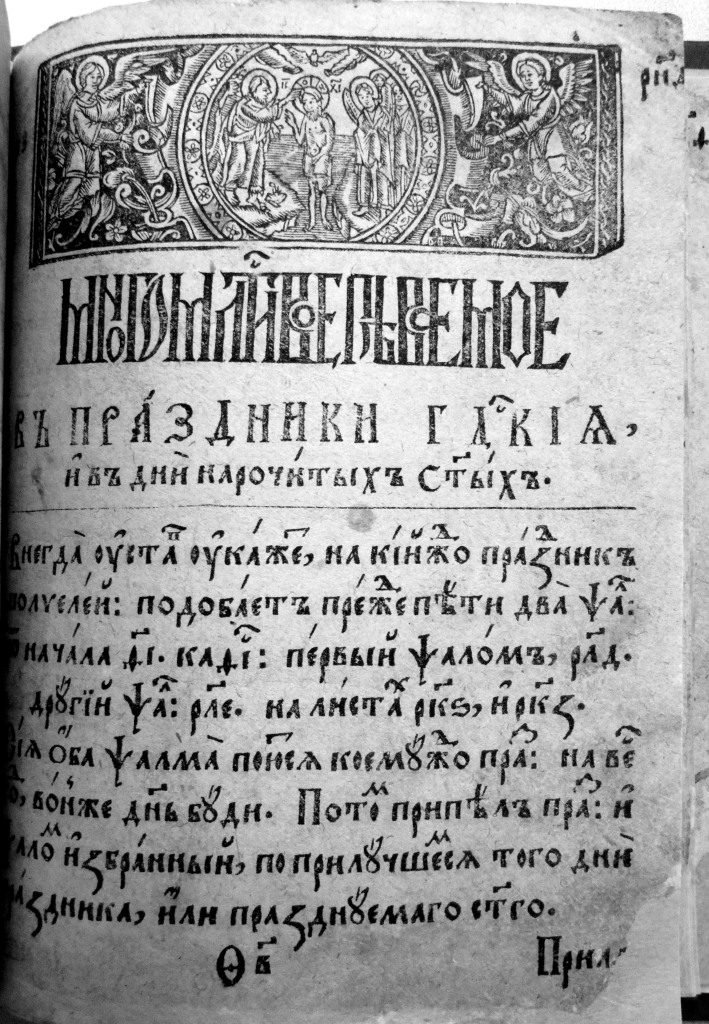 МНОГОМЛТИВОЕ ПѢВАЕМОЕ
въ пра́здники гдⷭ҇кїѧ,
и҆ въ дни̑ нарочи́тыхъ ст҃ы́хъ.
Внегда̀ ᲂу҆ста́в ᲂу҆ка́же, на кі́йждо пра́здникъ
полуеле́й: подоба́етъ пре́жде пѣ́ти два̀ ѱал:
нача́ла ѳ҃і. каѳ: пе́рвый ѱало́мъ, рл҃д.
дрꙋгі́й ѱал: рл҃є. на листа́х рк҃ѕ, и҆ рк҃з.
сїѧ̑ о҆́ба ѱалма̀ пою́тсѧ коемꙋ́ждо пра: на ве
во́ньже дн҃ь бꙋ́ди. Пото́м припѣ́лъ пра: и҆
и҆збра́нный, по прилꙋ́чшемсѧ того̀ днѝ
пра́здника, и҆лѝ пра́зднꙋемаго ст҃го.
Ѳв҃
Прил